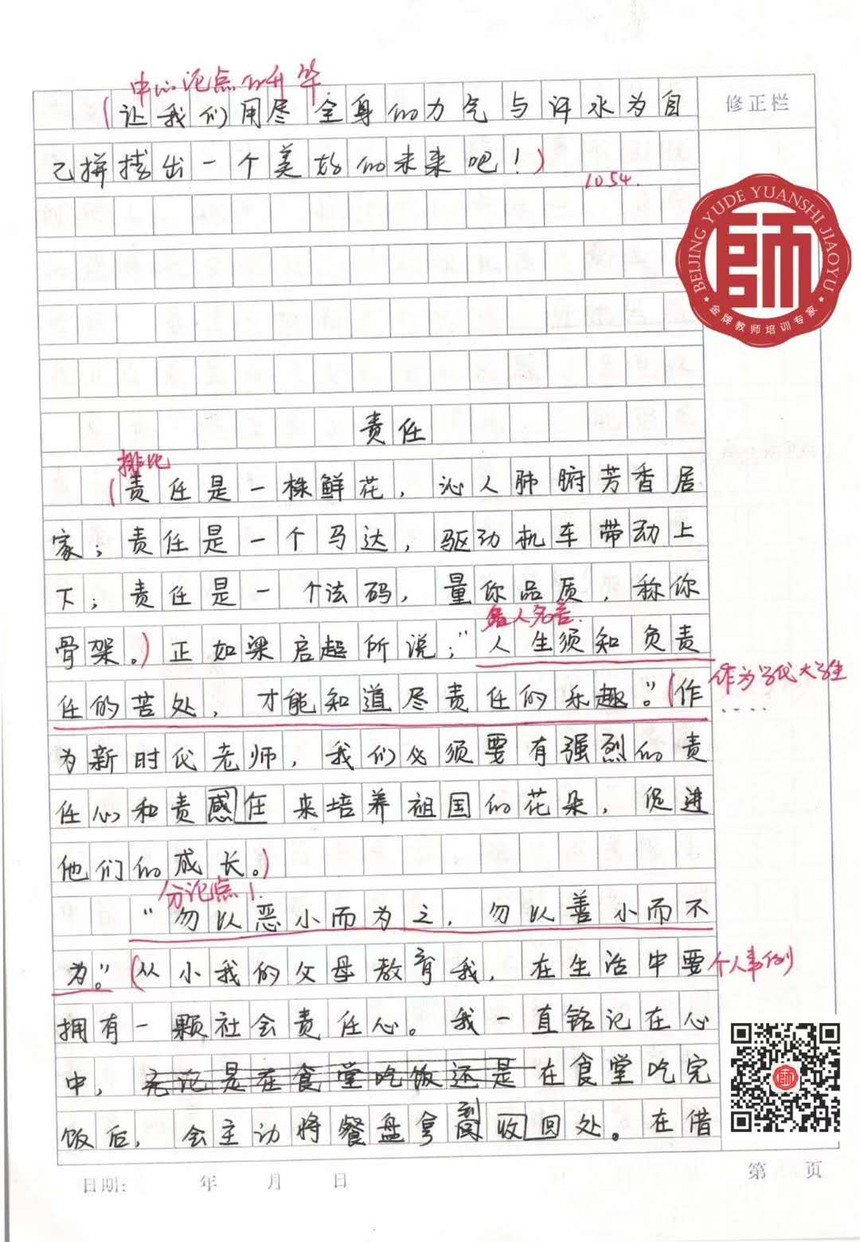 中心论点的升华
(让我们用尽全身的力气与汗水为自
己拼搏出一个美好的未来吧！)
1054.
修正栏
BEIJING YUDE YUANSHI JIAOYU
師
金牌教师培训专家
责任
排比
(责任是一株鲜花，沁人肺腑芳香居
家；责任是一个马达，驱动机车带动上
下；责任是一个法码，量你品质，称你
骨架。)正如梁启超所说；“人生须知负责
名人名言
任的苦处，才能知道尽责任的乐趣。”(作
作为当代大学生
....
为新时代老师，我们必须要有强烈的责
任心和责感任来培养祖国的花朵，促进
他们的成长。)
分论点1.
“勿以恶小而为之，勿以善小而不
为。”(从小我的父母教育我，在生活中要
个人事例)
拥有一颗社会责任心。我一直铭记在心
中，无论是在食堂吃饭还是在食堂吃完
饭后，会主动将餐盘拿到回收回处。在借
日期： 年 月 日
第 页